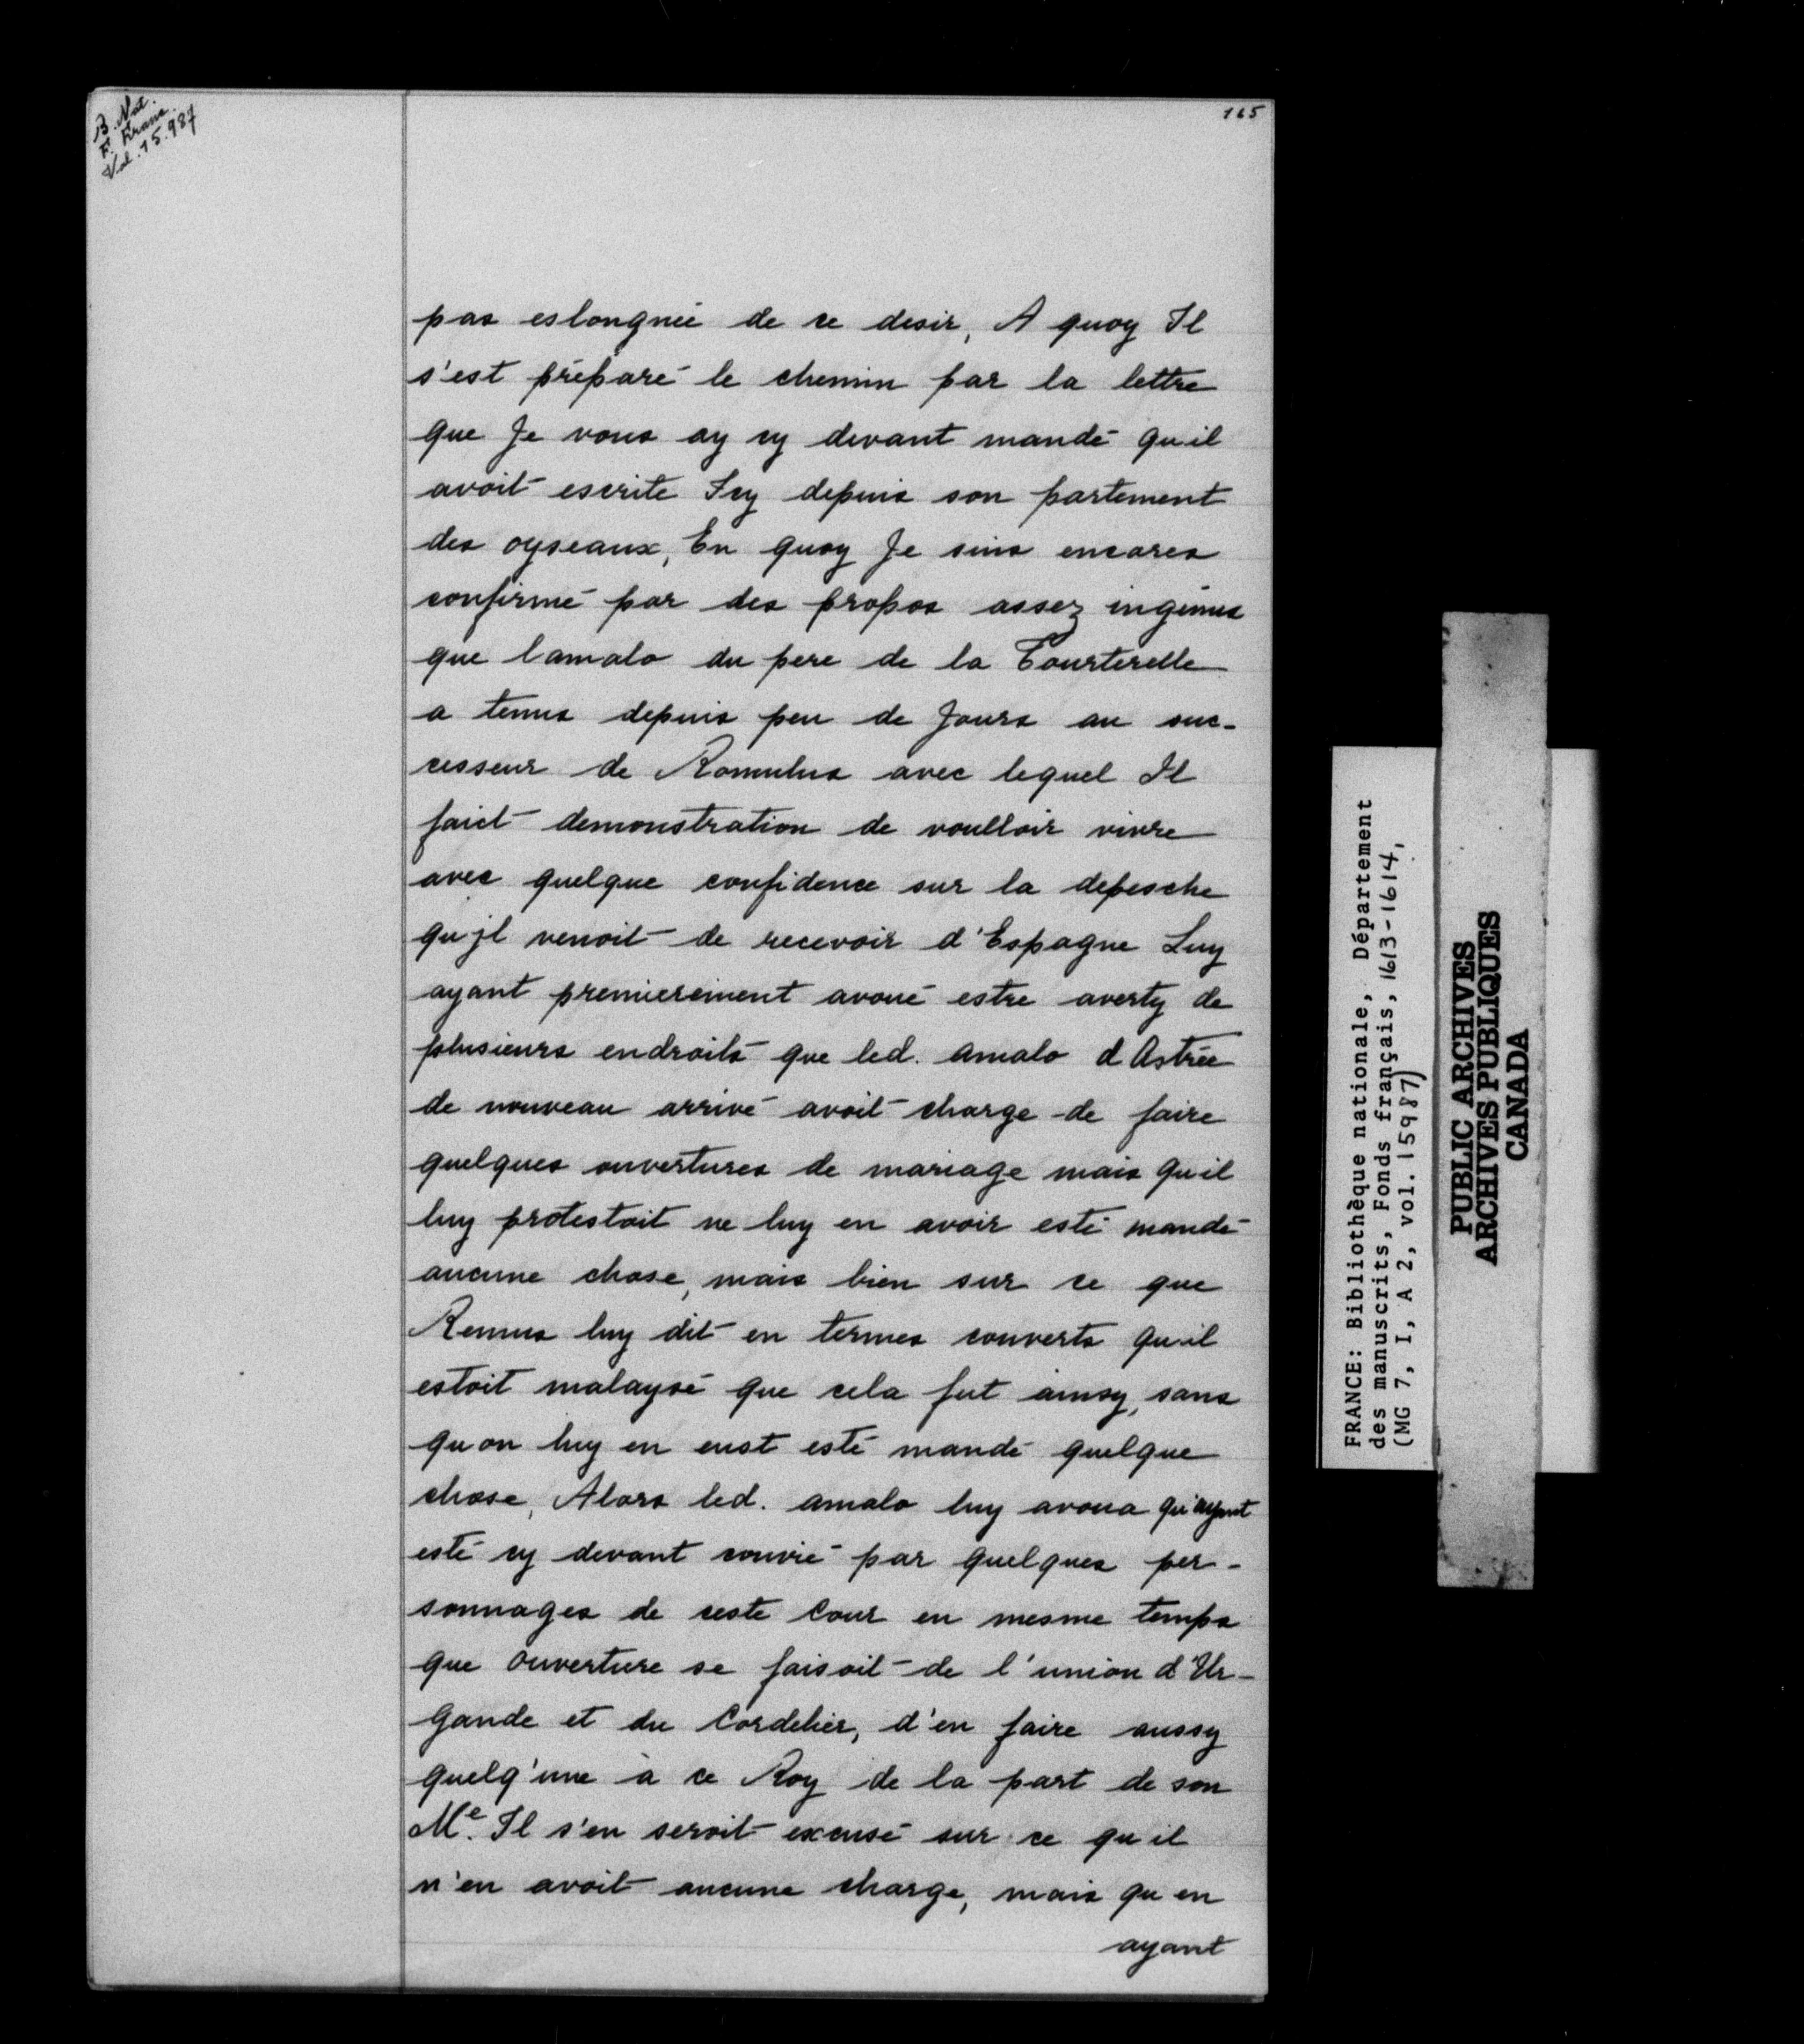 B. Nat.
F. Franc.
Vol. 15.987
165
pas eslongnée de ce desir, A quoy Il
s'est préparé le chemin par la lettre
que Je vous ay cy devant mandé qu'il
avoit escrite Icy depuis son partement
des oyseaux, En quoy Je suis encores
confirmé par des propos assez ingénus
que lamalo du pere de la Tourterelle
a tenus depuis peu de Jours au suc-
cesseur de Romulus avec lequel Il
faict demonstration de voulloir vivre
avec quelque confidence sur la depesche
qu jl venoit de recevoir d'Espagne Luy
ayant premierement avoué estre averty de
plusieurs endroits que led. amalo d Astrée
de nouveau arrivé avoit charge de faire
quelques ouvertures de mariage mais qu'il
luy protestoit ne luy en avoir esté mandé
aucune chose, mais bien sur ce que
Remus luy dit en termes couverts qu'il
estoit malaysé que cela fut ainsy, sans
qu on luy en eust esté mandé quelque
chose, Alors led. amalo luy avoua qu'ayant
esté cy devant convié par quelques per-
sonnages de ceste Cour en mesme temps
que ouverture se faisoit de l'union d'Ur-
gande et du Cordelier, d'en faire aussy
quelq'une à ce Roy de la part de son
Me. Il s'en seroit excusé sur ce qu il
n'en avoit aucune charge, mais qu en
ayant
FRANCE: Bibliothèque nationale, Département
des manuscrits, Fonds français, 1613-1614,
(MG 7, I, A 2, vol. 15987)
PUBLIC ARCHIVES
ARCHIVES PUBLIQUES
CANADA